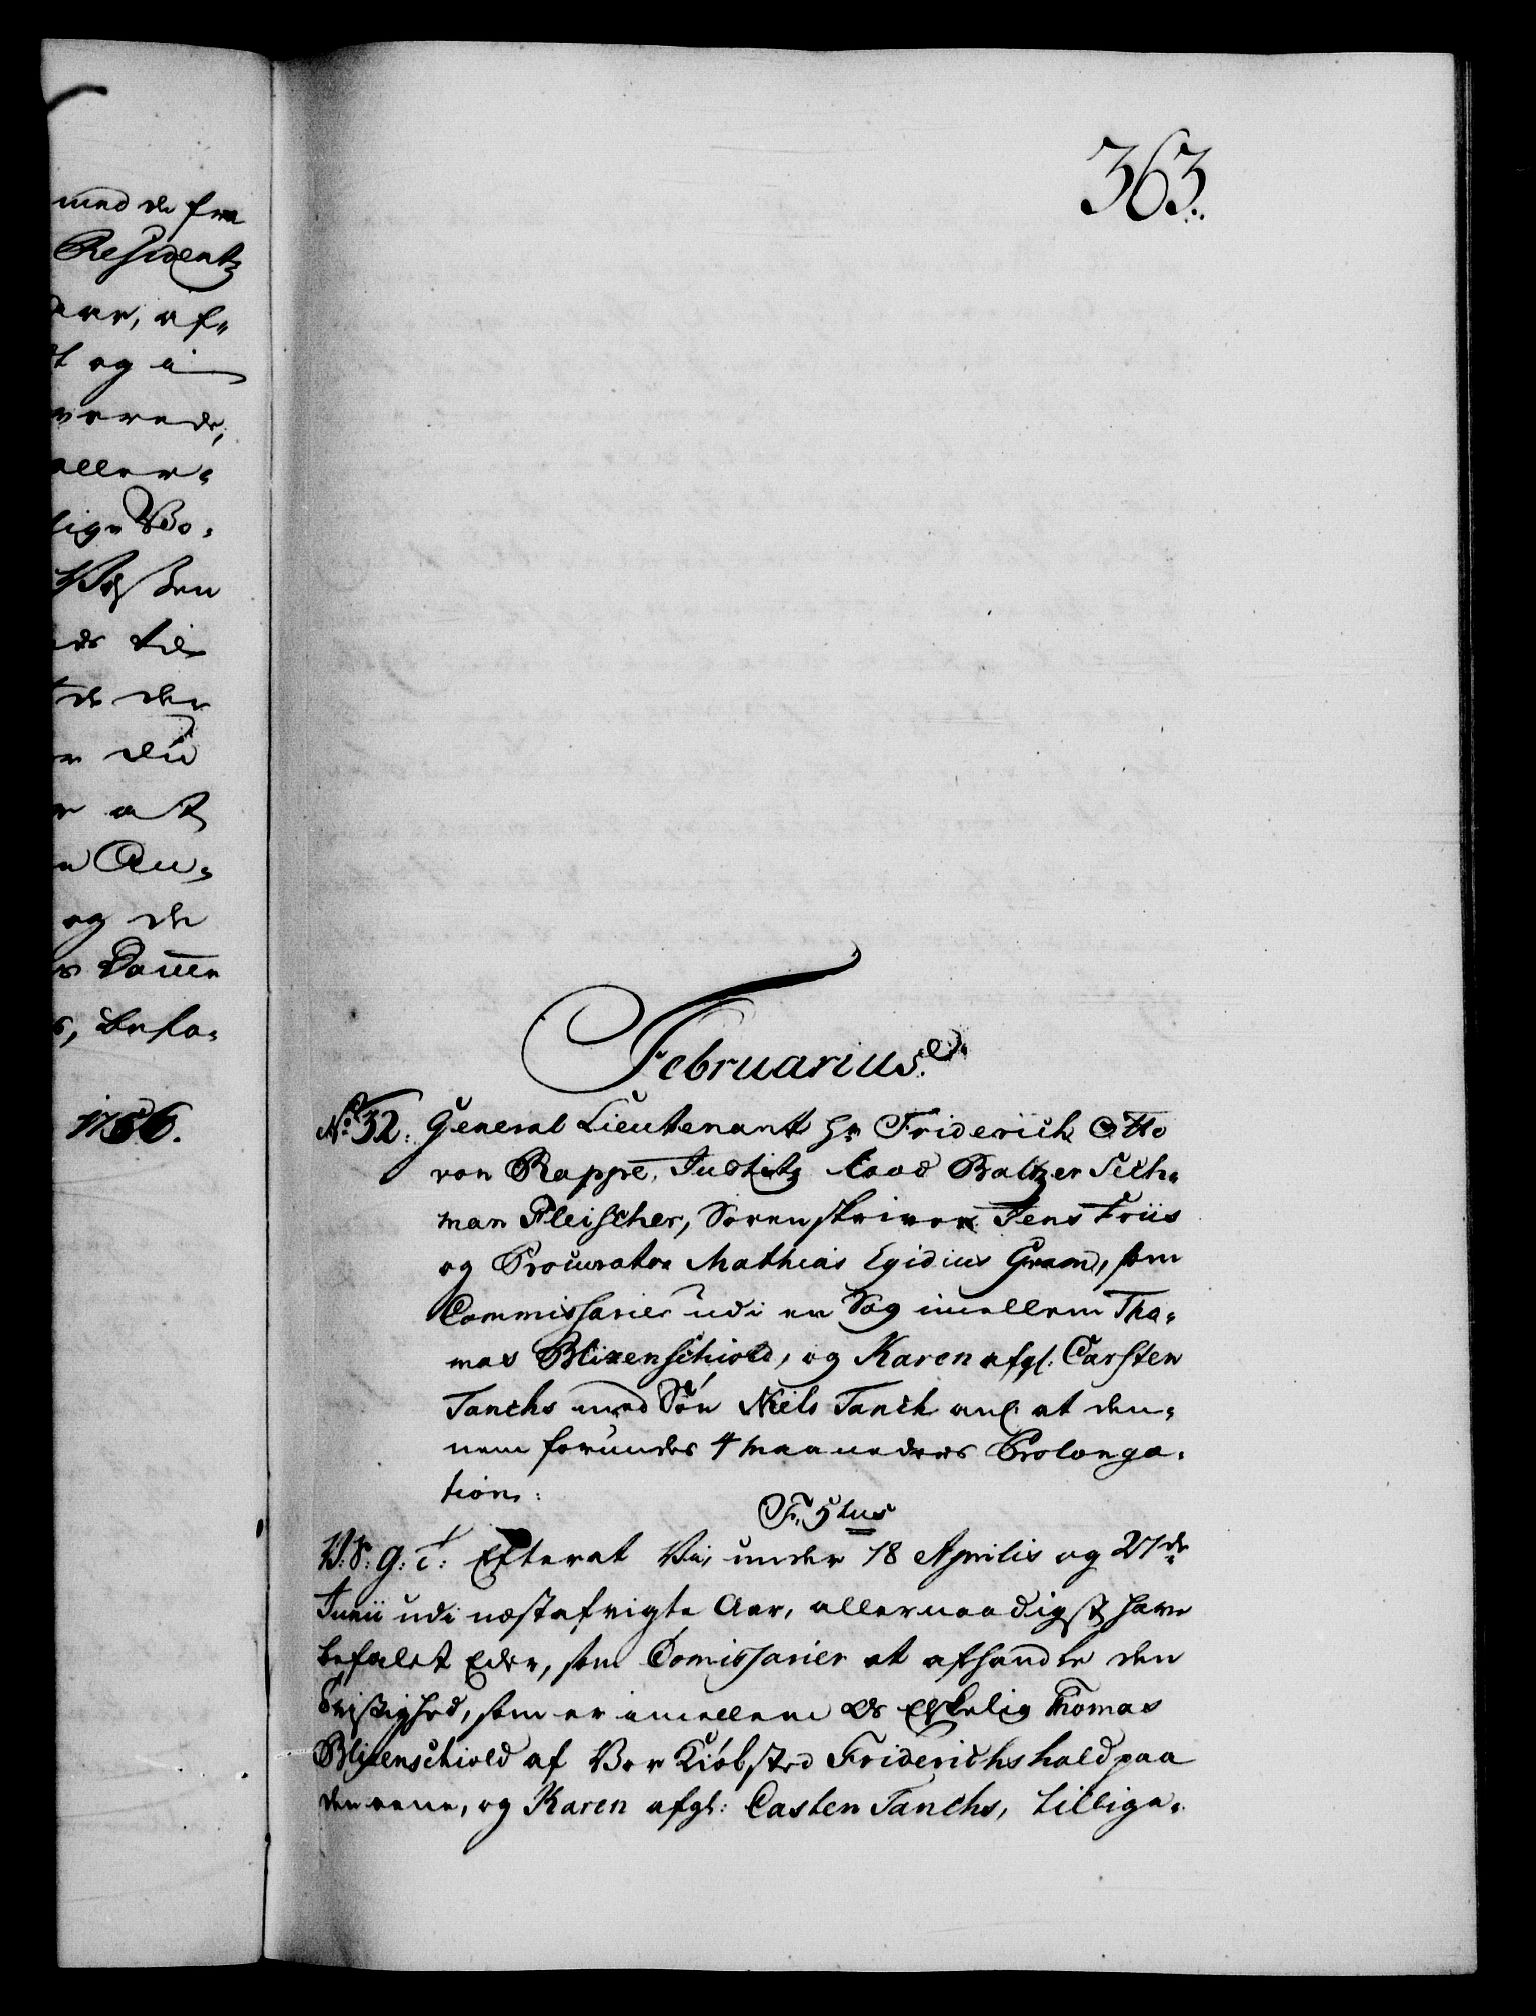 med de fra
Residentz
aar, af-
t og i
werede,
aller-
lige Bo-
sen
ds til
de den
r Du
r at
n An-
og de
s Dame
s, befa-
1756.
363.
Februarius.
No 32. General Lieutenant Hr Friderich Otto
von Rappe, Justitz Raad Baltzer Sech-
man Fleischer, Sorenskriver Jens Friis
og Procurator Mathias Egidius Gram, som
Commissarier udi en Sag imellem Tho-
mas Blixenschiold, og Karen afgl. Carsten
Tanchs med Søn Niels Tanch anl. at den-
nem forundes 4 Maaneders Prolonga-
tion:
Fr. 5tus
V. S. G. T. Efterat Vi, under 18 Aprilis og 27de
Junii udi næstafvigte Aar, allernaadigst have
befalet Eder, som Comissarier at afhandle den
Tvistighed, som er imellem Os Elskelig Thomas
Blixenschiold af Vor Kiøbsted Friderichshald paa
den eene, og Karen afgl: Casten Tanchs, tillige-